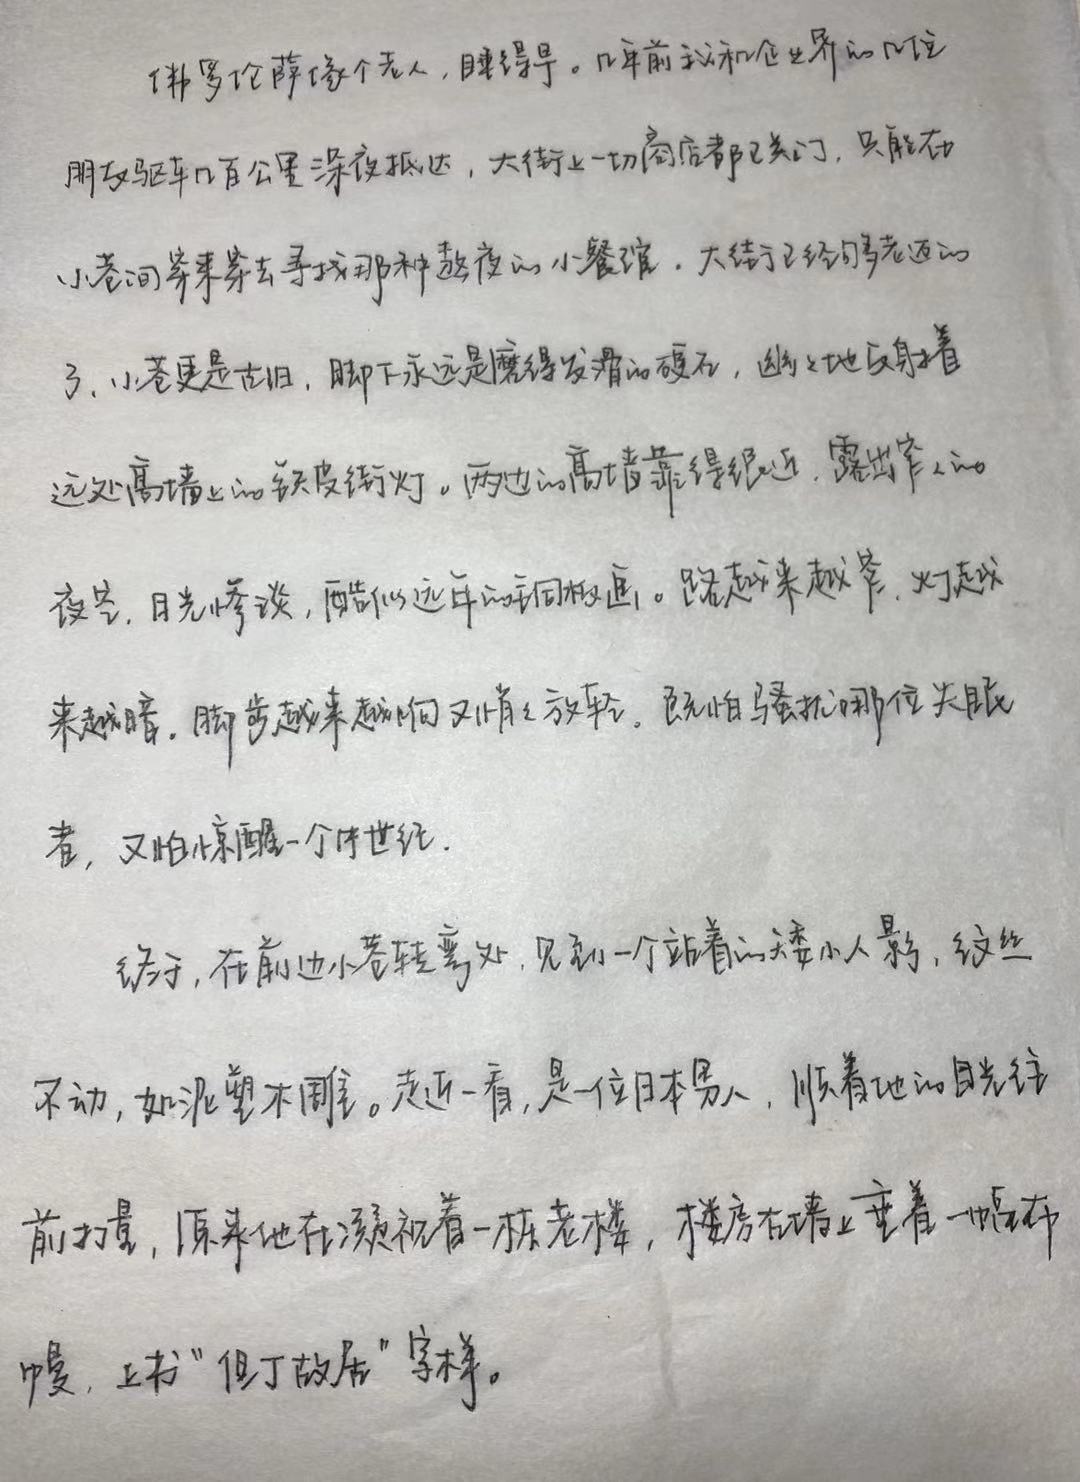 佛罗伦萨像个老人，睡得早。几年前我和企业界的几位
朋友驱车几百公里深夜抵达，大街上一切商店都已关门，只能在
小巷间穿来穿去寻找那种熬夜的小餐馆。大街已经够老迈的
了，小巷更是古旧，脚下永远是磨得发滑的硬石，幽幽地反射着
远处高墙上的铁皮街灯。两边的高墙靠得很近，露出窄窄的
夜空，月光惨淡，酷似远年的铜板画。路越来越窄，灯越
来越暗。脚步越来越响又悄悄放轻，既怕骚扰哪位失眠
者，又怕惊醒一个中世纪。
终于，在前边小巷转弯处，见到一个站着的矮小人影，纹丝
不动，如泥塑木雕。走近一看，是一位日本男人，顺着他的目光往
前打量，原来他在凝视着一栋老楼，楼房右墙上垂着一幅布
幔，上书“但丁故居”字样。